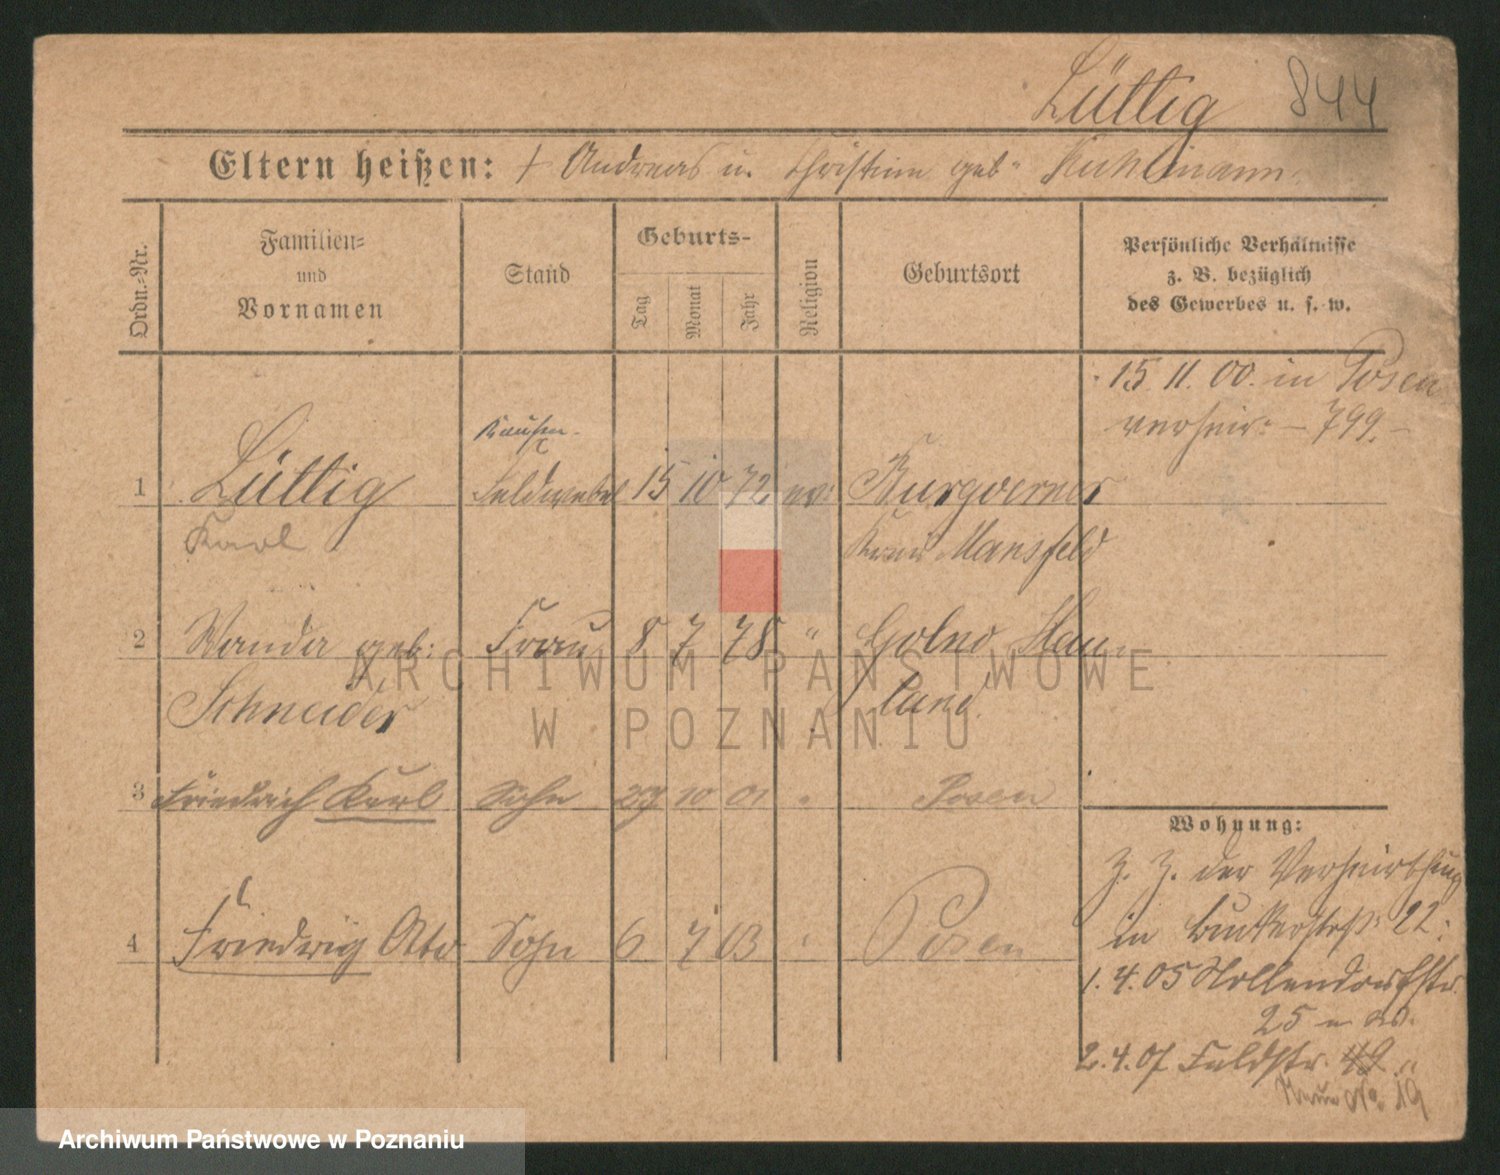 Lüttig 844
Eltern heißen: + Andreas u. Christine geb. Kuhlmann.
Ordn.-Nr.
Familien-
und
Vornamen
Stand
Geburts-
Tag
Monat
Jahr
Religion
Geburtsort
Persönliche Verhältnisse
z. B. bezüglich
des Gewerbes u. s. w.
15. 11. 00. in Posen
verheir: - 799. -
1 Lüttig Feldwebel 15 10 72 ev: Burgoerner
Karl Kreis Mansfeld
2 Wanda geb: Frau 8 7 78 " Golno Hau
Schneider land
3 Friedrich Karl Sohn 29 10 01 " Posen
Wohnung:
Z. Z. der Verheirathung
in Bukerstr. 22.
4 Friedrich Otto Sohn 6 7 03 " Posen
1. 4. 05 Nollendorfstr.
25
2. 4. 07 Feldstr. 49
Neue No. 19
ARCHIWUM PAŃSTWOWE
W POZNANIU
Archiwum Państwowe w Poznaniu